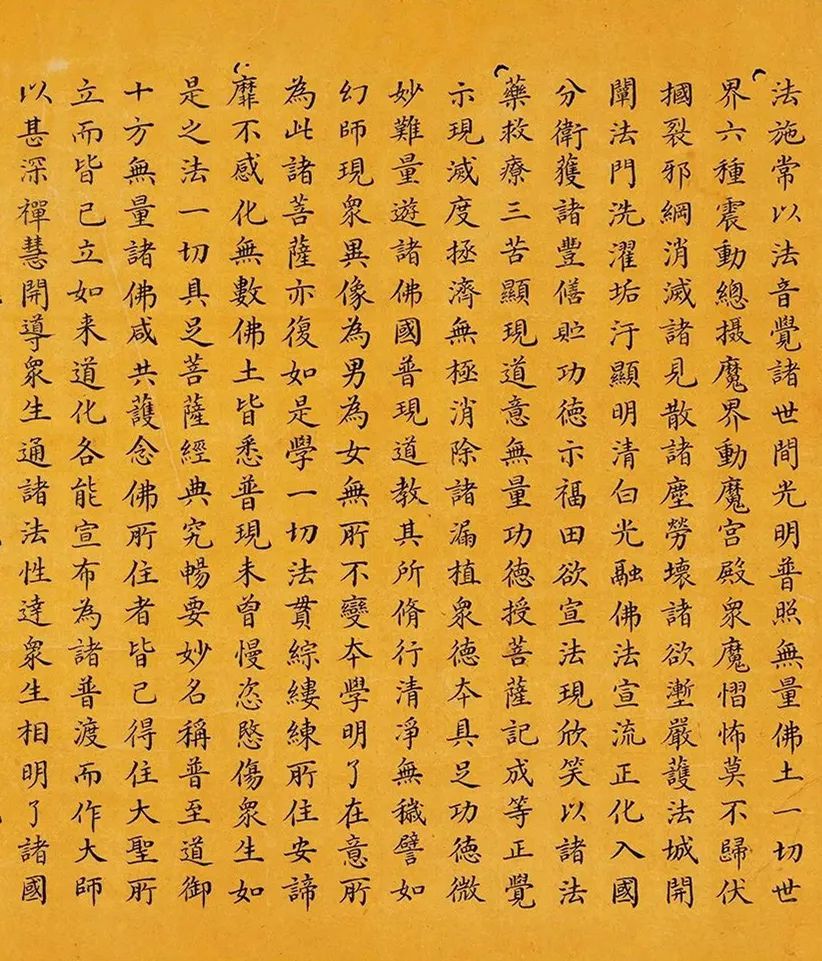 法施常以法音覺諸世間光明普照無量佛土一切世
界六種震動總攝魔界動魔宮殿眾魔慴怖莫不歸伏
摑裂邪綱消滅諸見散諸塵勞壞諸欲塹嚴護法城開
闡法門洗濯垢汙顯明清白光融佛法宣流正化入國
分衛獲諸豐僐貯功德示福田欲宣法現欣笑以諸法
藥救療三苦顯現道意無量功德授菩薩記成等正覺
示現滅度拯濟無極消除諸漏植眾德本具足功德微
妙難量遊諸佛國普現道教其所脩行清淨無穢譬如
幻師現眾異像為男為女無所不變本學明了在意所
為此諸菩薩亦復如是學一切法貫綜縷練所住安諦
靡不感化無數佛土皆悉普現未曾慢恣愍傷眾生如
是之法一切具足菩薩經典究暢要妙名稱普至道御
十方無量諸佛咸共護念佛所住者皆已得住大聖所
立而皆已立如来道化各能宣布為諸普渡而作大師
以甚深禪慧開導眾生通諸法性達眾生相明了諸國